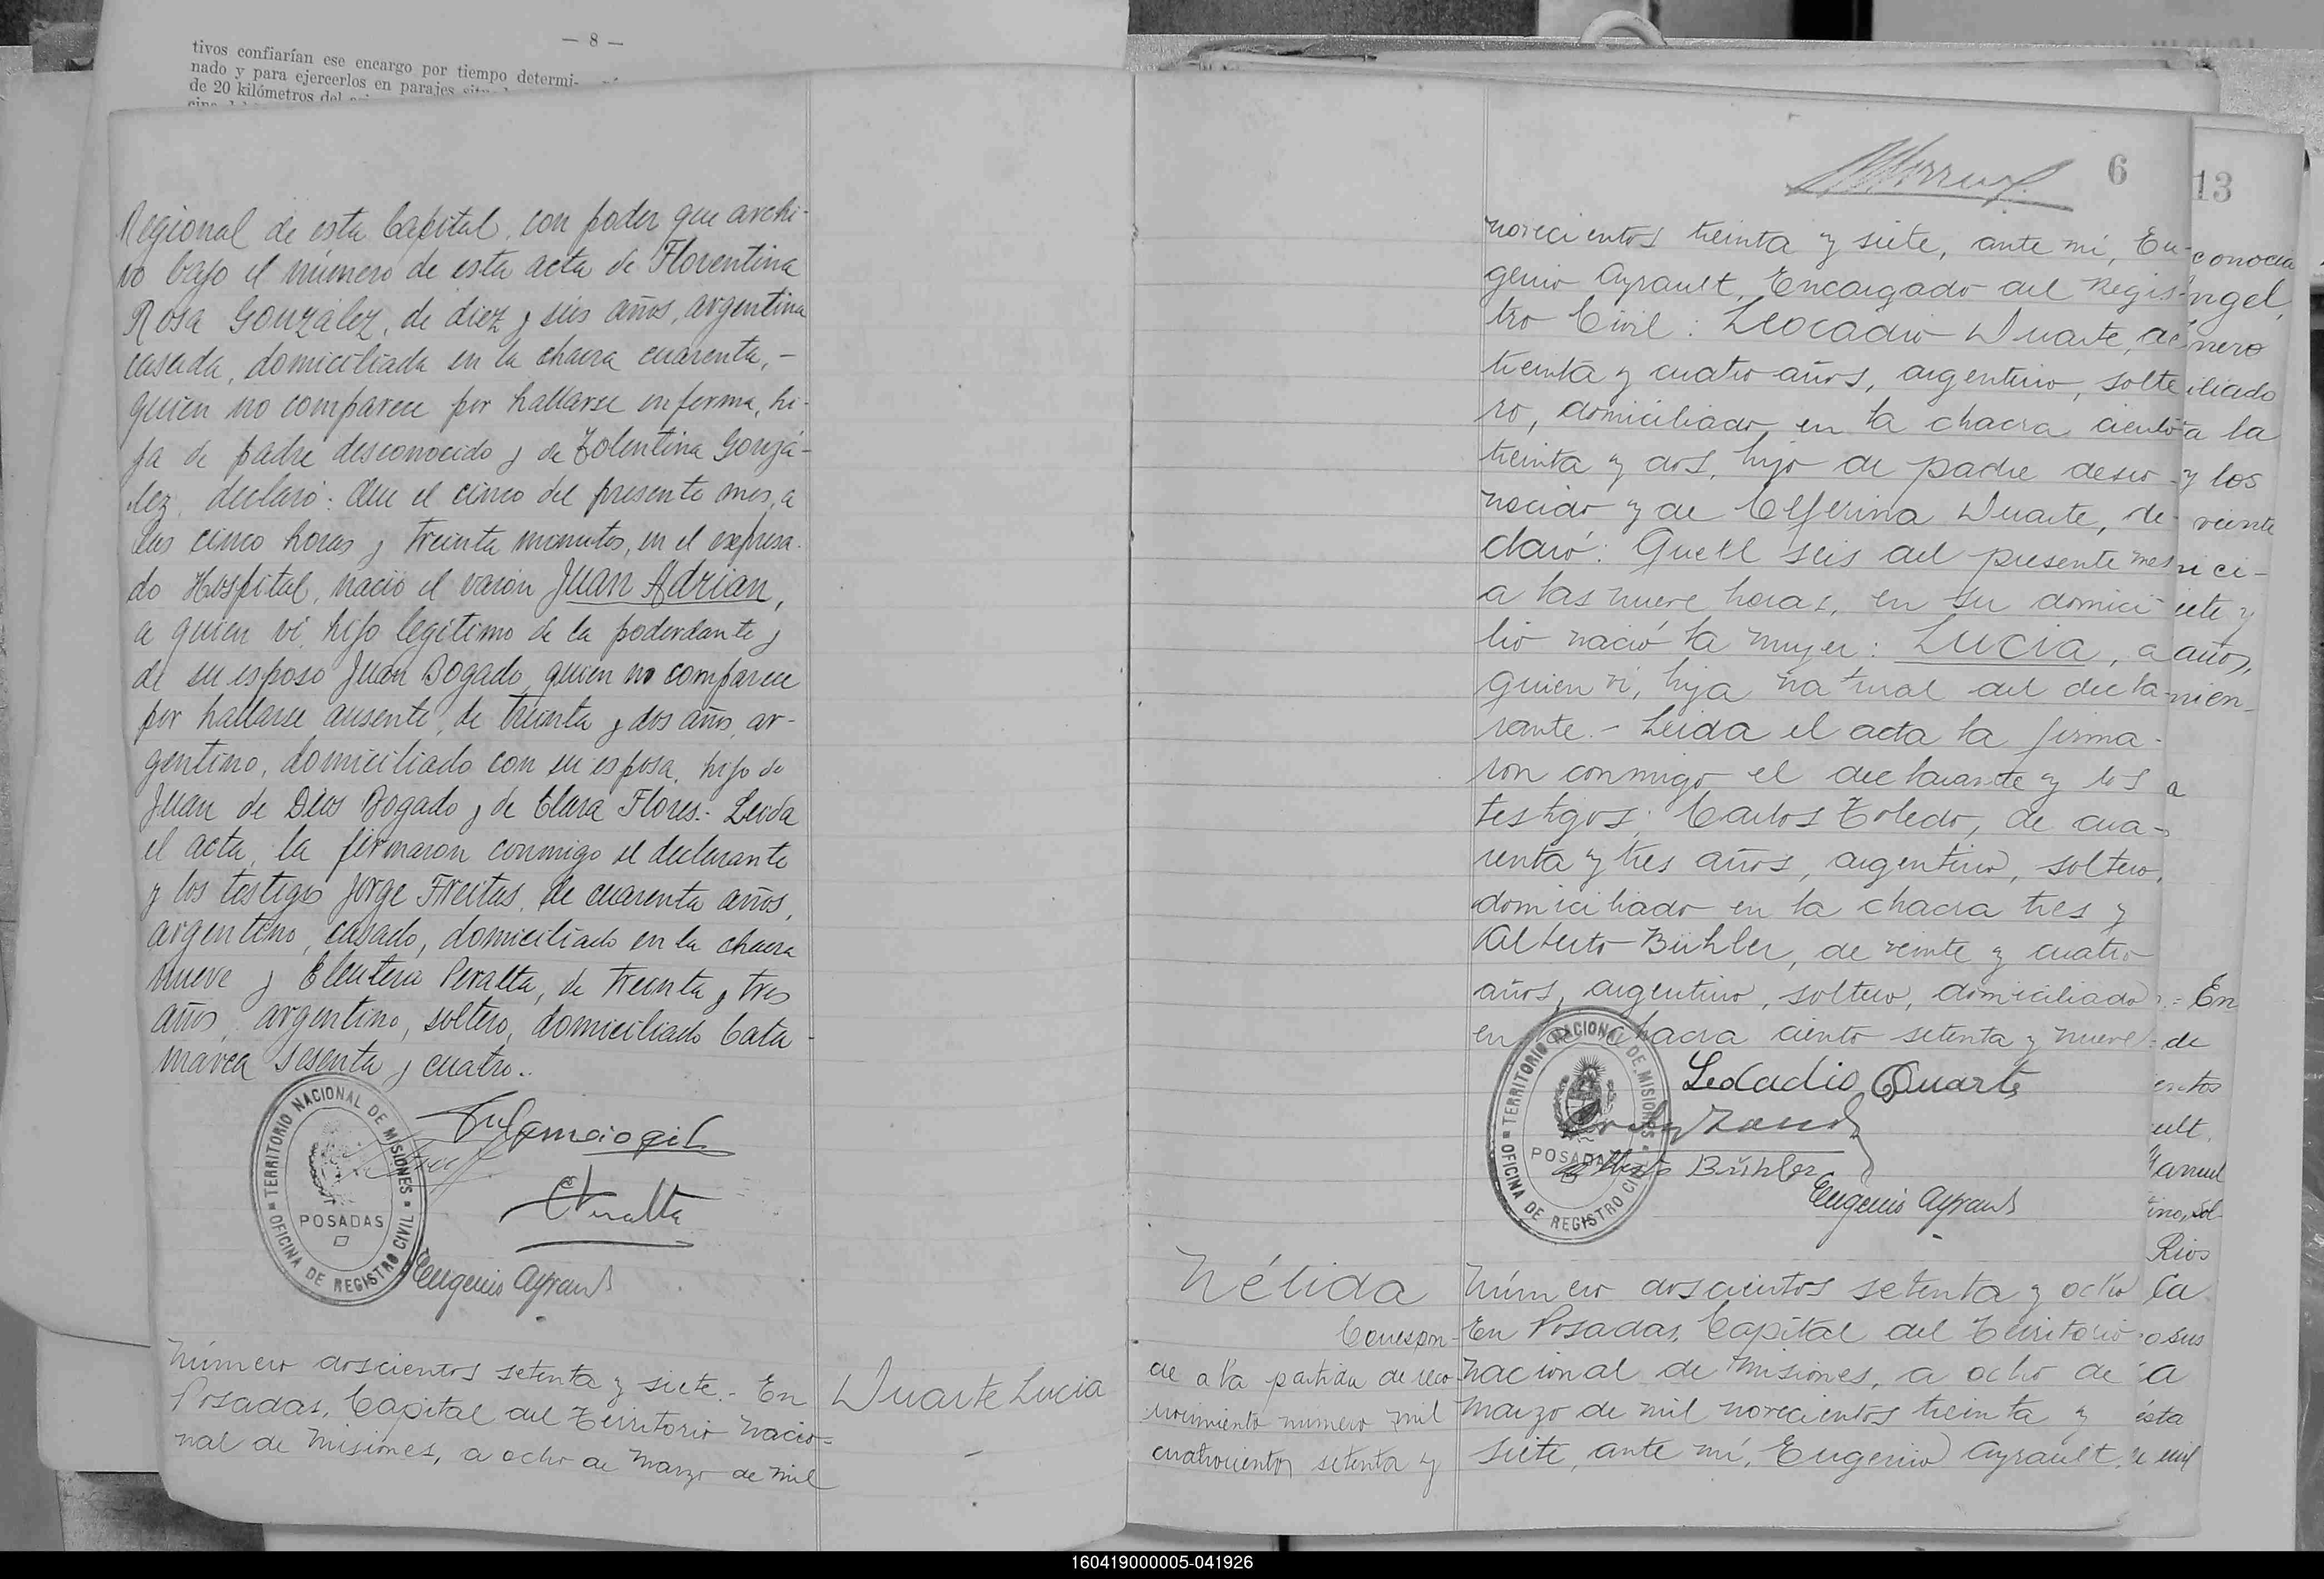 — 8 —
tivos confiarían ese encargo por tiempo determi-
nado y para ejercerlos en parajes
de 20 kilómetros del
Regional de esta Capital, con poder que archi-
vo bajo el número de esta acta de Florentina
Rosa González, de diez y seis años, argentina
casada, domiciliada en la chacra cuarenta, -
quien no comparece por hallarse enferma, hi-
ja de padre desconocido y de Tolentina Gonzá-
lez, declaró: Que el cinco del presente mes, a
las cinco horas y treinta minutos, en el expresa-
do Hospital, nació el varón Juan Adrian,
a quien ví, hijo legítimo de la poderdante y
de su esposo Juan Bogado, quien no comparece
por hallarse ausente, de treinta y dos años, ar-
gentino, domiciliado con su esposa, hijo de
Juan de Dios Bogado y de Clara Flores.- Leida
el acta, la firmaron conmigo el declarante
y los testigos Jorge Freitas, de cuarenta años,
argentino, casado, domiciliado en la chacra
nueve y Eleuterio Peralta, de treinta y tres
años, argentino, soltero, domiciliado Cata-
marca sesenta y cuatro.-
TERRITORIO NACIONAL DE MISIONES
POSADAS
OFICINA DE REGISTRO CIVIL
EPeralta
Eugenio Ayrault
Número doscientos setenta y siete.- En
Posadas, Capital del Territorio Nacio-
nal de Misiones, a ocho de Marzo de mil
Duarte Lucia
-
6
novecientos treinta y siete, ante mí, Eu-
genio Ayrault, Encargado del Regis-
tro Civil: Leocadio Duarte, de
treinta y cuatro años, argentino, solte-
ro, domiciliado en la chacra ciento
treinta y dos, hijo de padre desco-
nocido y de Celferina Duarte, de-
claró: Que el seis del presente mes
a las nueve horas, en su domici-
lio nació la mujer: Lucia, a
quien ví, hija natural del decla-
rante.- Leida el acta la firma-
ron conmigo el declarante y los
testigos: Carlos Toledo, de cua-
renta y tres años, argentino, soltero,
domiciliado en la chacra tres y
Alberto Bühler, de veinte y cuatro
años, argentino, soltero, domiciliado
en la chacra ciento setenta y nueve.
TERRITORIO NACIONAL DE MISIONES
POSADAS
OFICINA DE REGISTRO CIVIL
Leocadio Duarte
Alberto Bühler
Eugenio Ayrault
Nélida
Correspon-
de a la partida de reco-
nocimiento número mil
cuatrocientos setenta y
Número doscientos setenta y ocho
En Posadas, Capital del Territorio
Nacional de Misiones, a ocho de
Marzo de mil novecientos treinta y
siete, ante mí, Eugenio Ayrault,
13
conocia
ngel,
nero
iliado
a la
y los
veinte
nici-
iete y
años,
nien-
a
En
de
entos
ult,
Manuel
tino, sol-
Rios
Ca
o sus
a
ésta
de mil
160419000005-041926